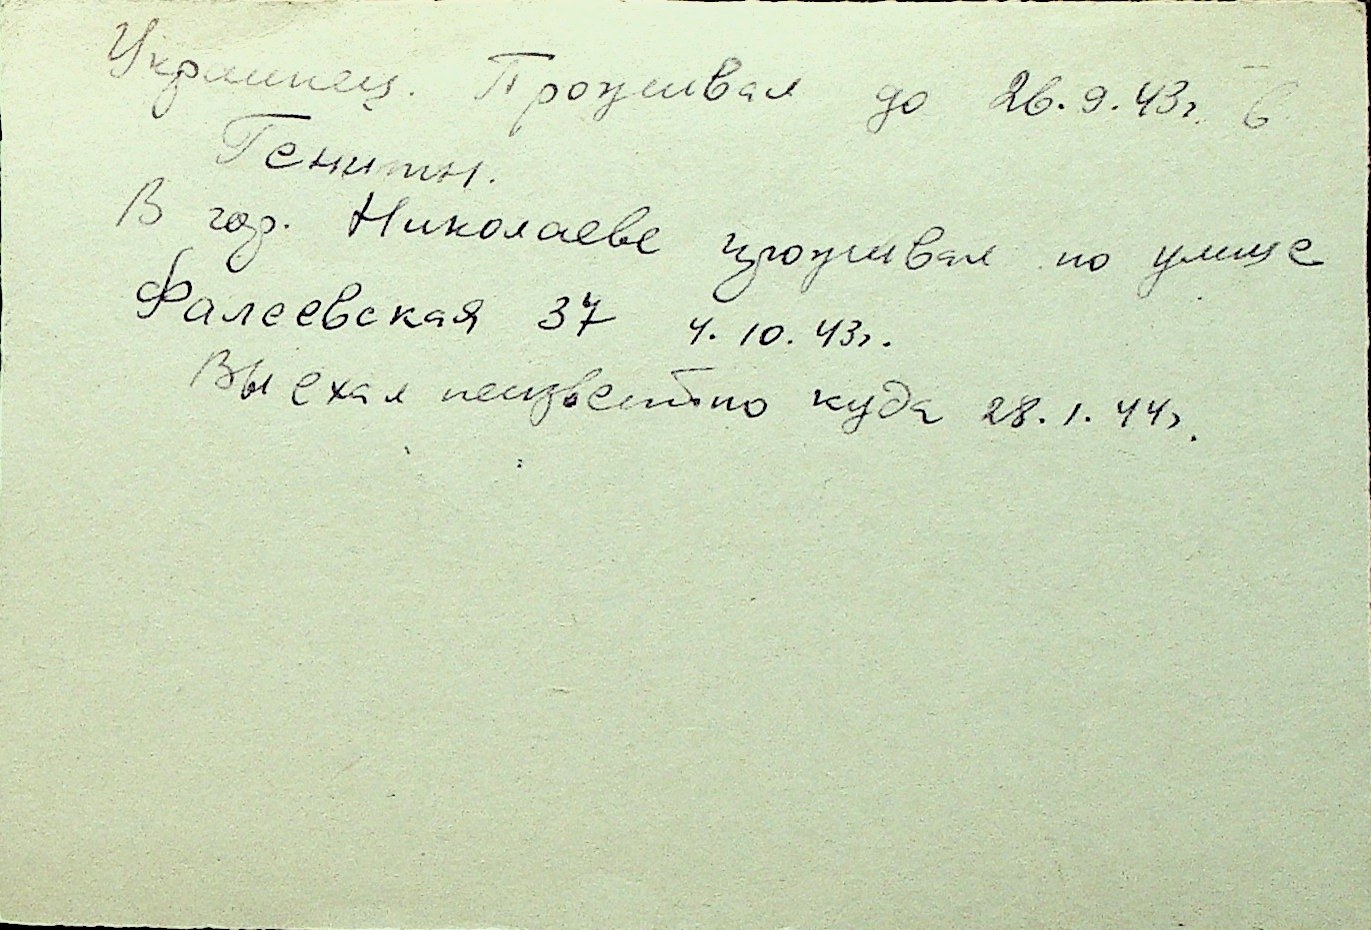 Украинец. Проживал до 26.9.43г. в
Генитн.
В гор. Николаеве проживал по улице
Фалеевская 37 4.10.43г.
Выехал неизвестно куда 28.1.44г.